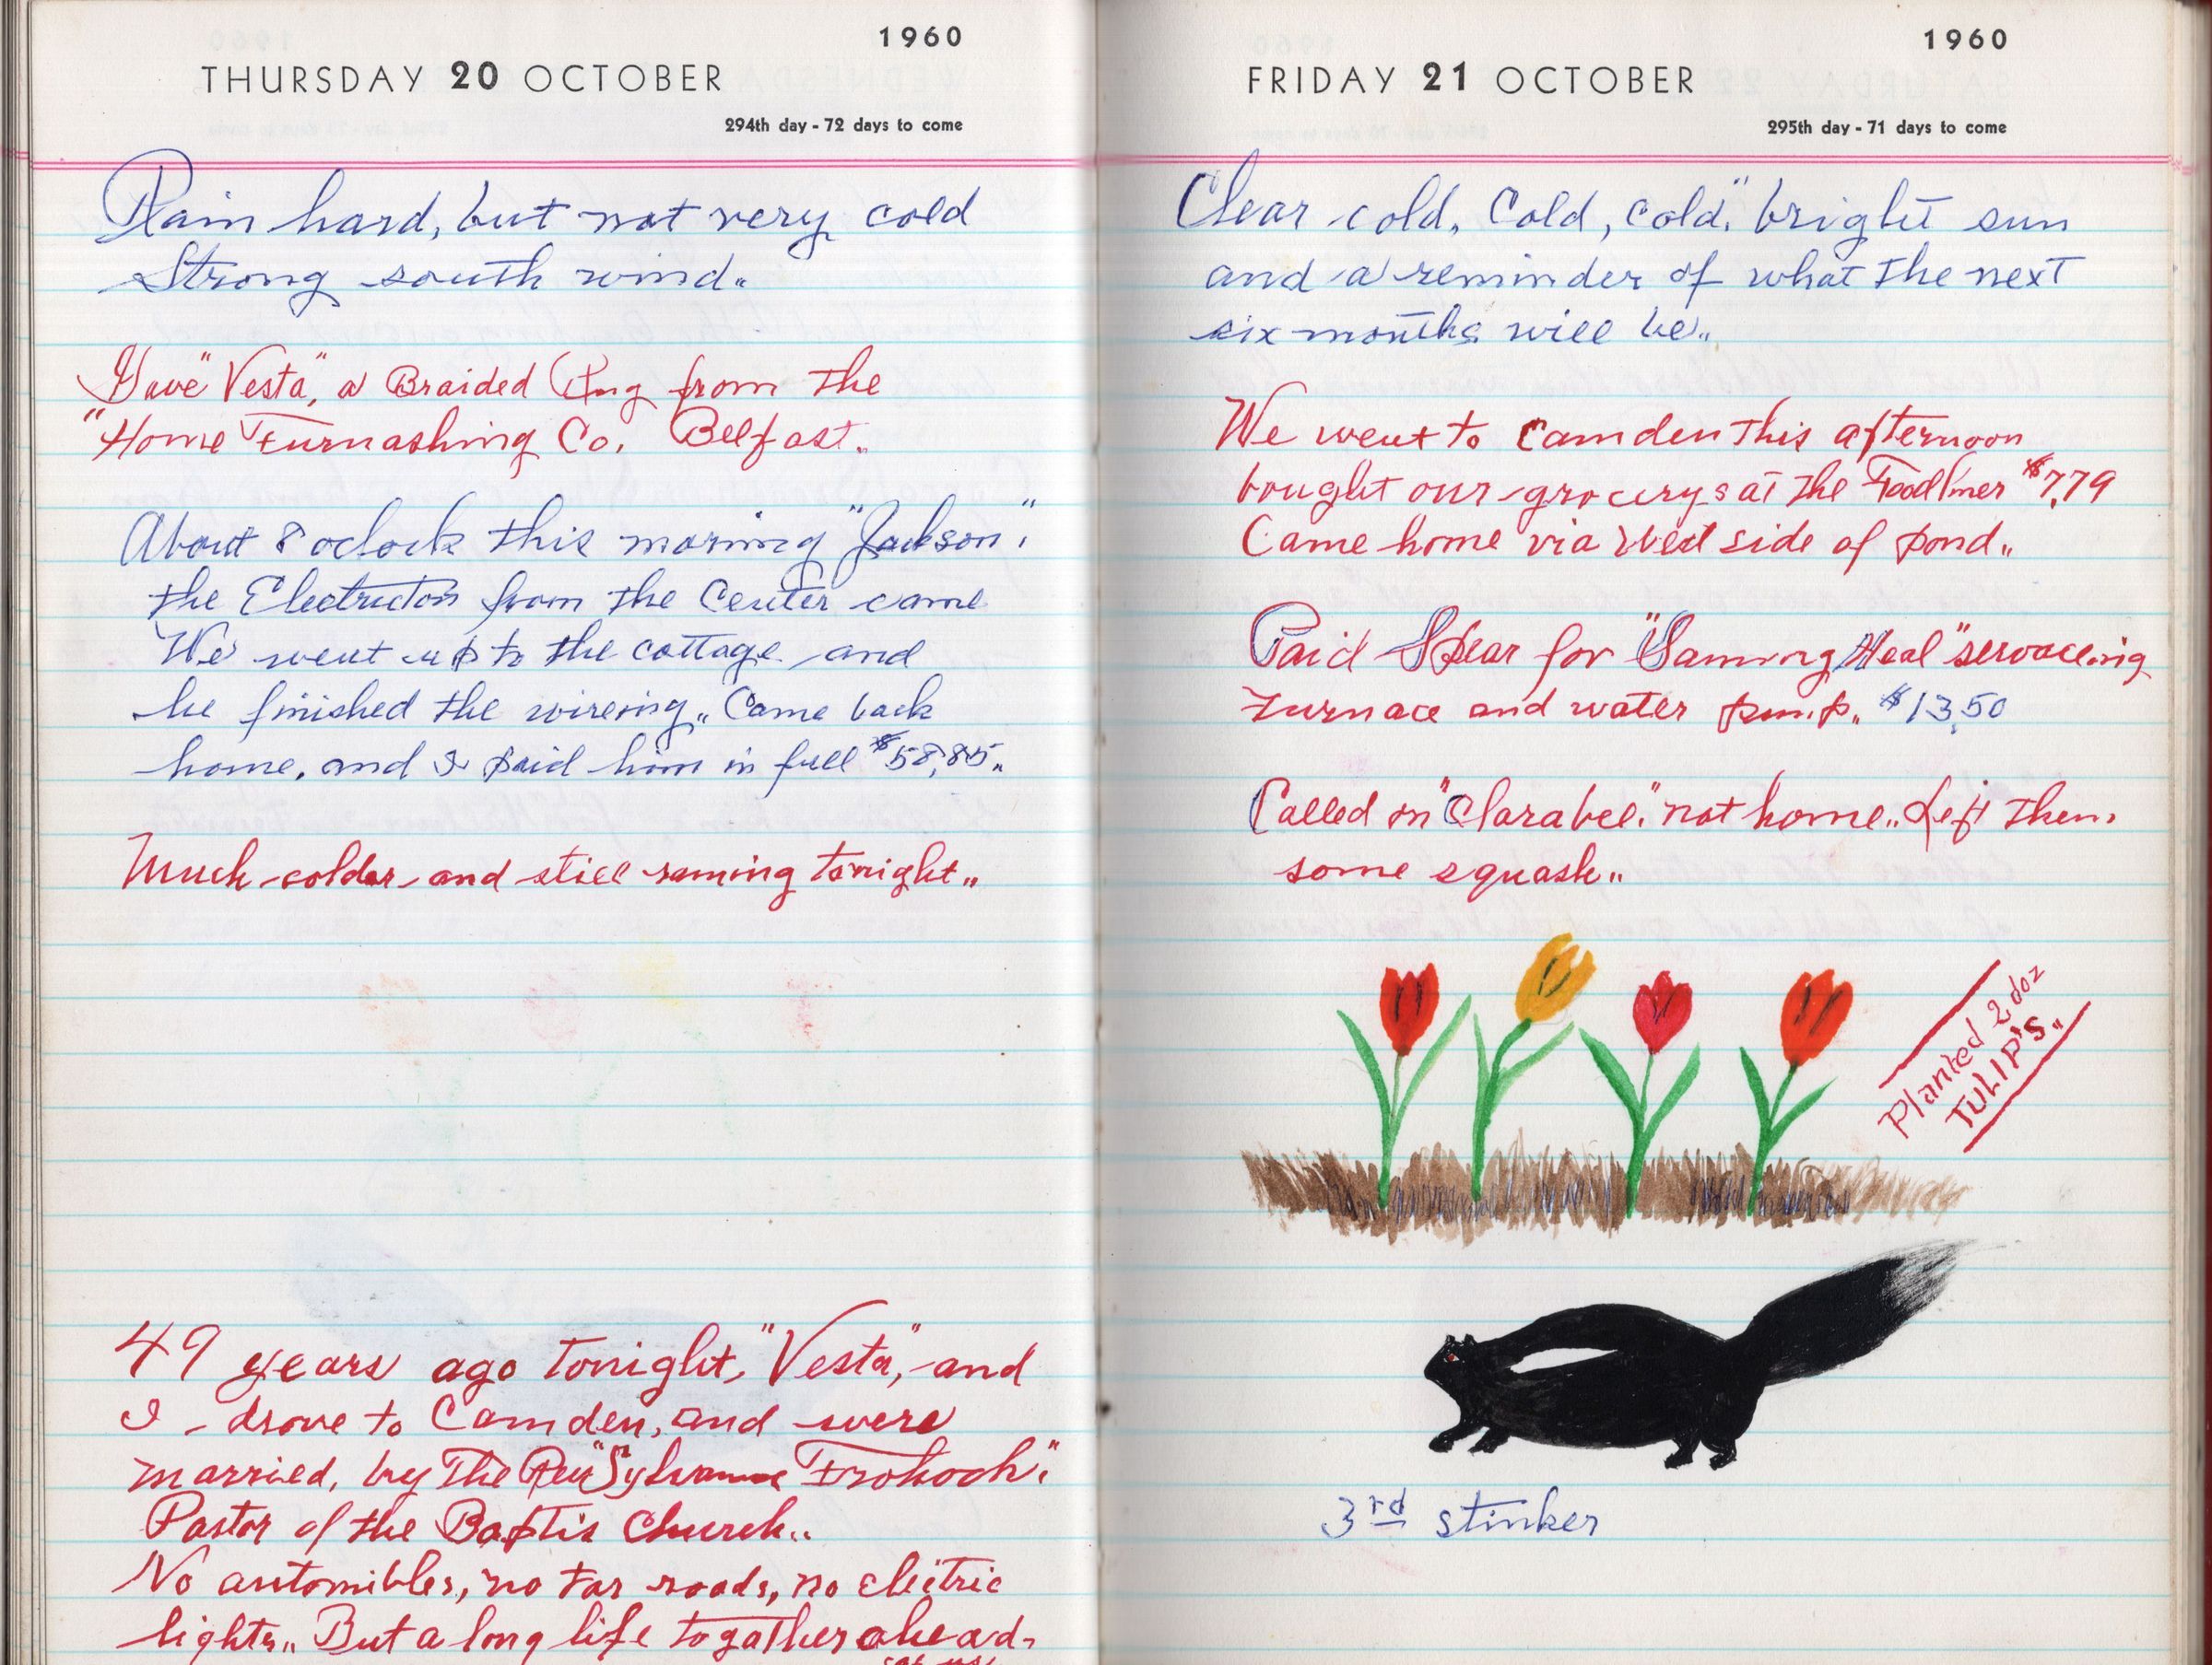 1960
THURSDAY 20 OCTOBER
294th day - 72 days to come
Rain hard, but not very cold
Strong south wind.
Gave "Vesta", a Braided Rug from the
"Home Furnashing Co. Belfast.
About 8 oclock this morning "Jackson".
the Electricton from the Center came
We went up to the cottage and
he finished the wireing,, Came back
home, and I paid him in full $58,85,,
Much colder and still raning tonight,,
49 years ago tonight, "Vesta", and
I - drove to Camden, and were
married, by The Rev "Sylvanus Frohoch".
Pastor of the Baptis Church..
No automibles, no tar roads, no electric
lights,, But a long life togather ahead-
of us
1960
FRIDAY 21 OCTOBER
295th day - 71 days to come
Clear cold, Cold, cold," bright sun
and a reminder of what the next
six months will be,,
We went to Camden this afternoon
bought our grocerys at the Foodliner $7,79
Came home via West side of pond,,
Paid Spear for "Saming Heal" servaceing
Furnace and water pump,, $13,50
Called on "Clarabel." not home,, Left them
some squash,,
Planted 2 doz
TULIP'S,,
3rd stinker